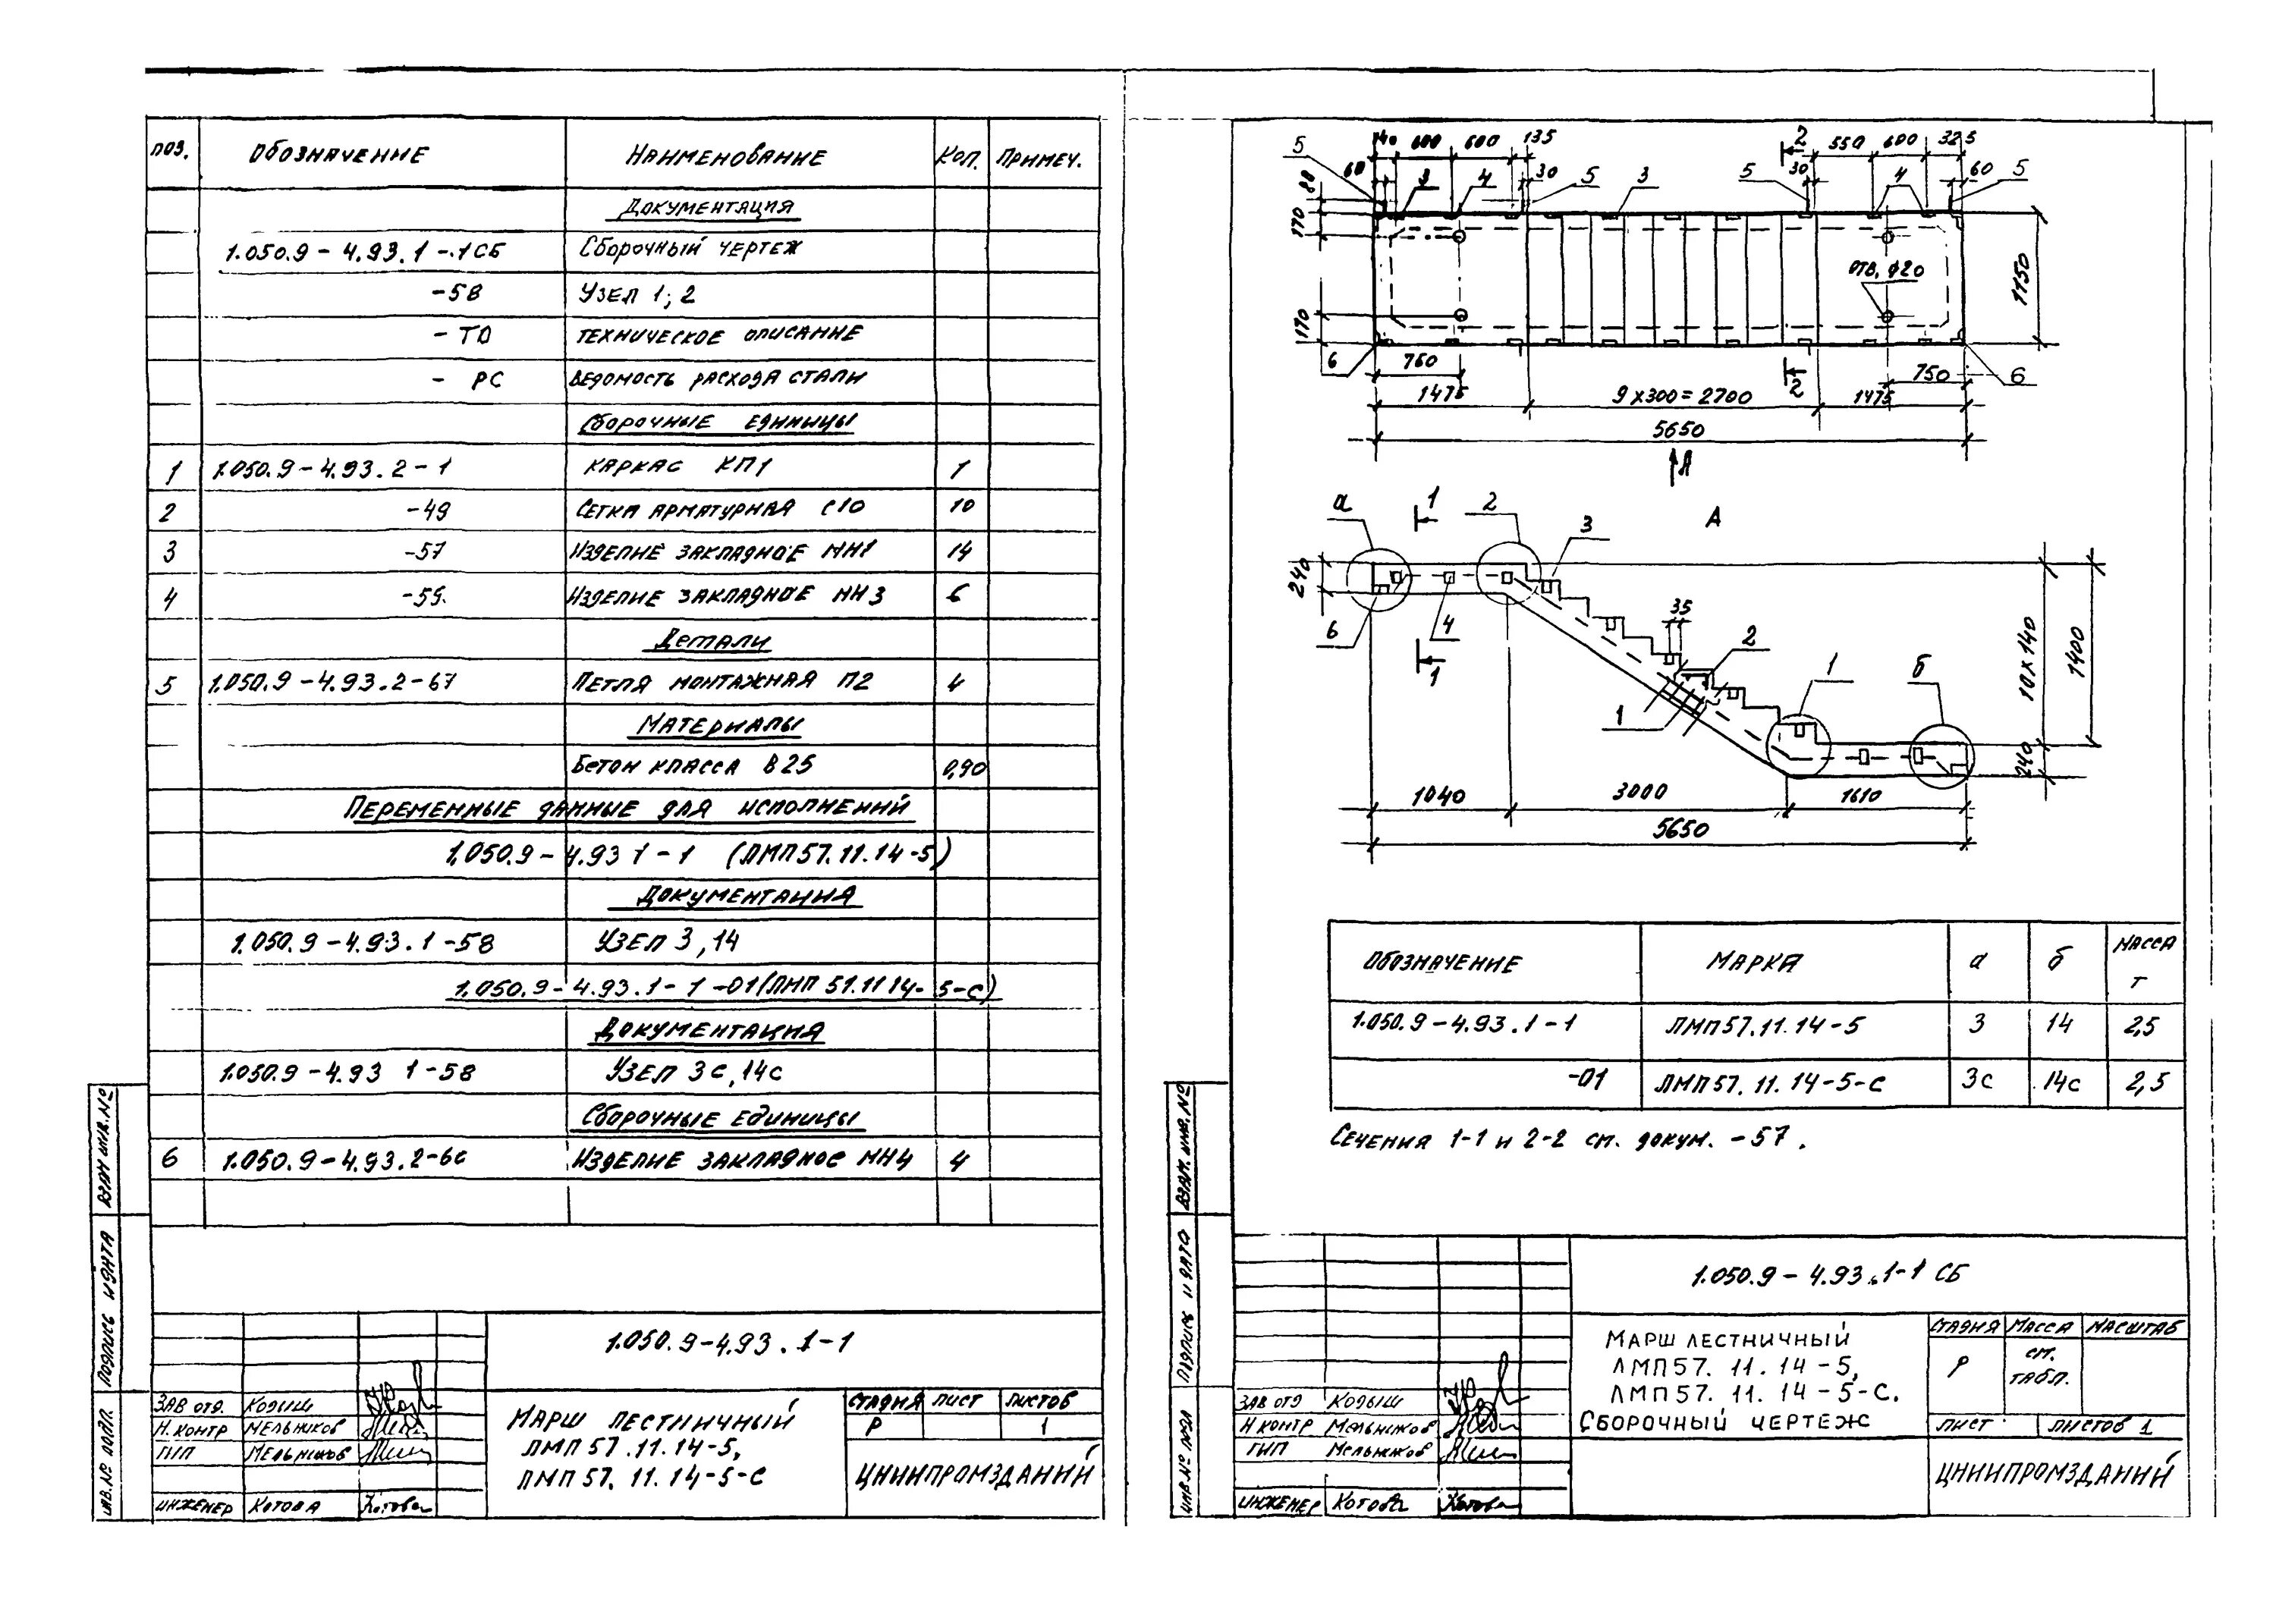 ПОЗ. ОБОЗНАЧЕНИЕ НАИМЕНОВАНИЕ КОЛ. ПРИМЕЧ.
ДОКУМЕНТАЦИЯ
1.050.9-4.93.1-.1СБ СБОРОЧНЫЙ ЧЕРТЕЖ
-58 УЗЕЛ 1; 2
- ТО ТЕХНИЧЕСКОЕ ОПИСАНИЕ
- РС ВЕДОМОСТЬ РАСХОДА СТАЛИ
СБОРОЧНЫЕ ЕДИНИЦЫ
1 1.050.9-4.93.2-1 КАРКАС КП1 1
2 -49 СЕТКА АРМАТУРНАЯ С10 10
3 -57 ИЗДЕЛИЕ ЗАКЛАДНОЕ МН1 14
4 -59. ИЗДЕЛИЕ ЗАКЛАДНОЕ МН3 6
ДЕТАЛИ
5 1.050.9-4.93.2-67 ПЕТЛЯ МОНТАЖНАЯ П2 4
МАТЕРИАЛЫ
БЕТОН КЛАССА В25 0,90
ПЕРЕМЕННЫЕ ДАННЫЕ ДЛЯ ИСПОЛНЕНИЙ
1.050.9-4.93 1-1 (ЛМП57.11.14-5)
ДОКУМЕНТАЦИЯ
1.050.9-4.93.1-58 УЗЕЛ 3,14
1.050.9-4.93.1-1-01(ЛМП 57.11 14-5-С)
ДОКУМЕНТАЦИЯ
1.050.9-4.93 1-58 УЗЕЛ 3с,14с
СБОРОЧНЫЕ ЕДИНИЦЫ
6 1.050.9-4.93.2-60 ИЗДЕЛИЕ ЗАКЛАДНОЕ МН4 4
ВЗАМ ИНВ.№
ПОДПИСЬ И ДАТА
ИНВ.№ ПОДЛ.
1.050.9-4.93.1-1
ЗАВ ОТД. КОДЫШ
Н.КОНТР МЕЛЬНИКОВ
ГИП МЕЛЬНИКОВ
ИНЖЕНЕР КОТОВА Котова
МАРШ ЛЕСТНИЧНЫЙ
ЛМП57.11.14-5,
ЛМП57.11.14-5-С
СТАДИЯ ЛИСТ ЛИСТОВ
Р 1
ЦНИИПРОМЗДАНИЙ
140 600 600 135 2 550 600 325
5 60 3 4 30 5 3 5 30 4 60 5
80
170
ОТВ. ⌀20
1150
170
6 760 2 750 6
1475 9x300=2700 1475
5650
А
а 1 2 3 А
240
6 4 1 35 2 1 б
1
10x140
1400
240
1040 3000 1610
5650
ОБОЗНАЧЕНИЕ МАРКА а б МАССА Т
1.050.9-4.93.1-1 ЛМП57.11.14-5 3 14 2,5
-01 ЛМП57.11.14-5-С 3с 14с 2,5
СЕЧЕНИЯ 1-1 и 2-2 см. докум. -57.
ВЗАМ. ИНВ.№
ПОДПИСЬ И ДАТА
ИНВ.№ ПОДЛ
1.050.9-4.93.1-1 СБ
ЗАВ ОТД КОДЫШ
Н КОНТР МЕЛЬНИКОВ
ГИП МЕЛЬНИКОВ
ИНЖЕНЕР КОТОВА Котова
МАРШ ЛЕСТНИЧНЫЙ
ЛМП57.11.14-5,
ЛМП57.11.14-5-С.
СБОРОЧНЫЙ ЧЕРТЕЖ
СТАДИЯ МАССА МАСШТАБ
Р СМ. ТАБЛ.
ЛИСТ ЛИСТОВ 1
ЦНИИПРОМЗДАНИЙ